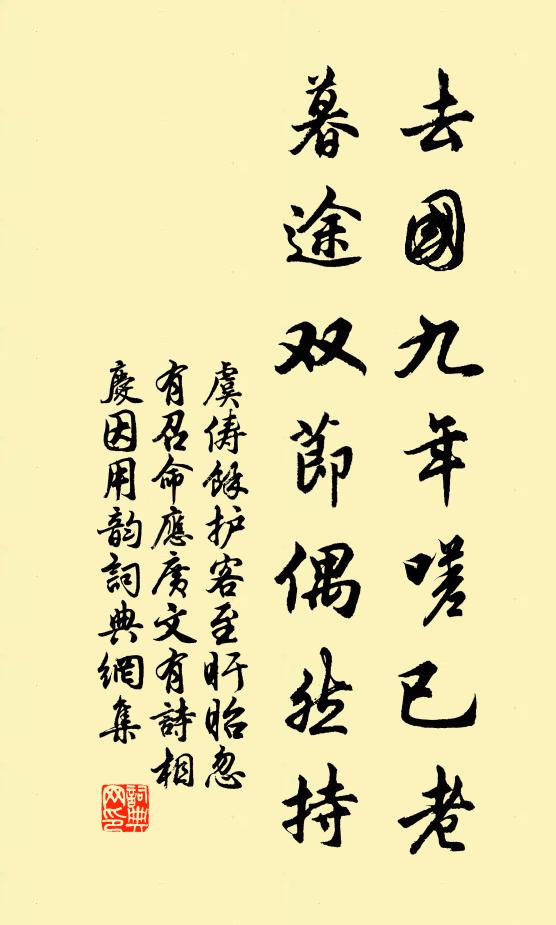 去國九年嗟已老
暮途双節偶然持
虞俦餘护客至盱眙忽
有召命應廣文有詩相
慶因用韵詞典網集
詞典
网印